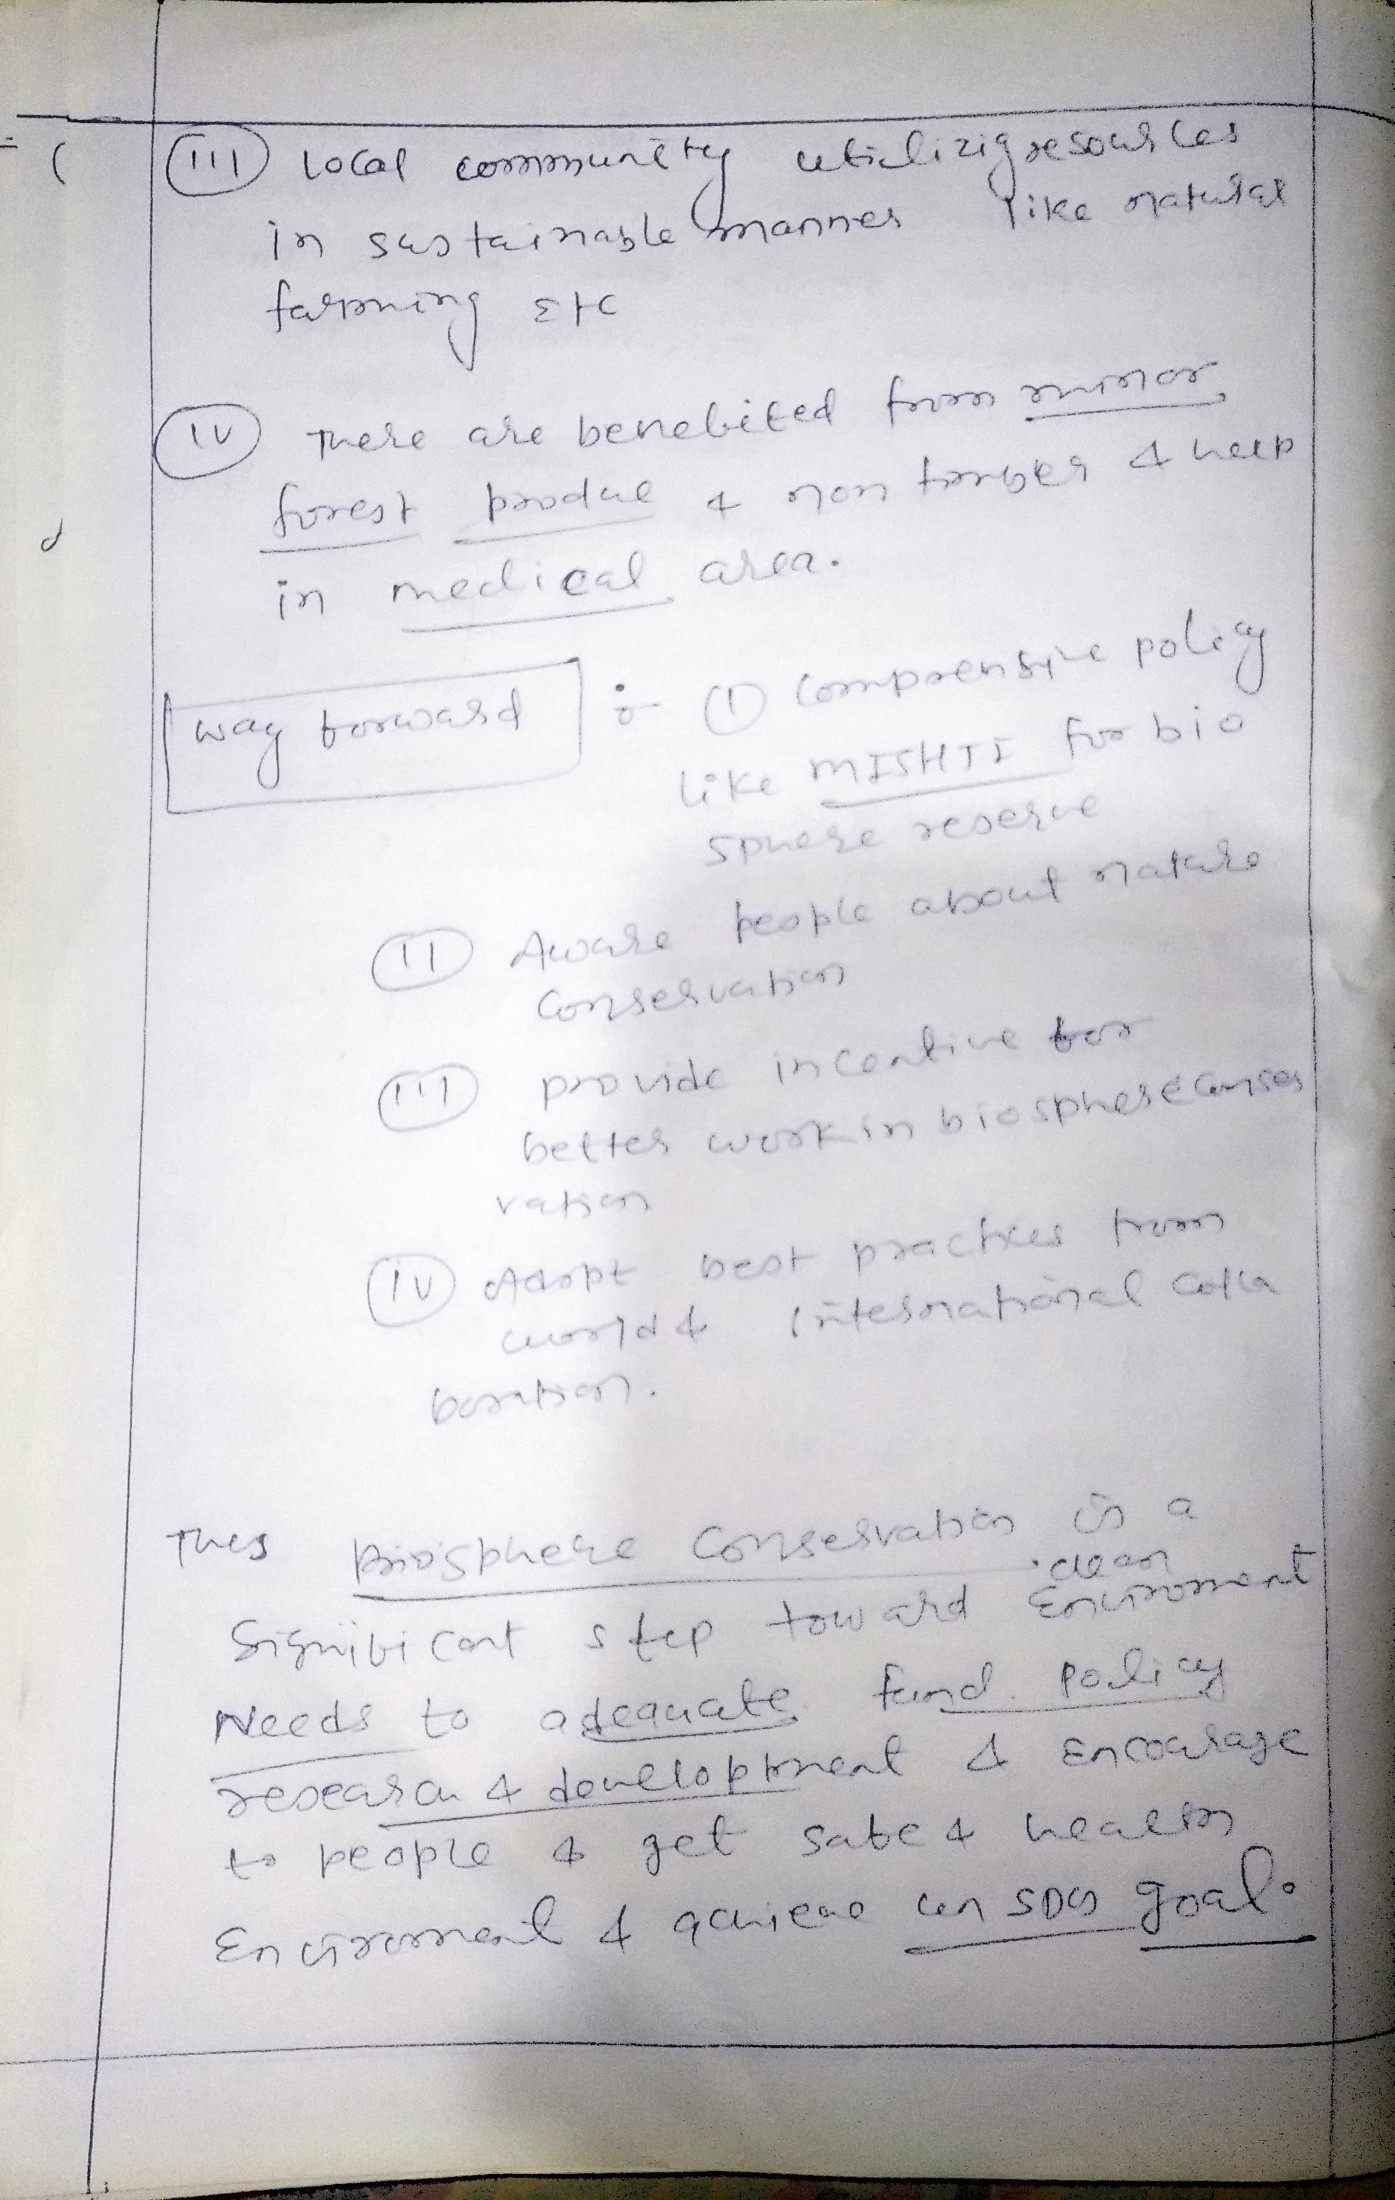 (III) Local community utilizing resources
in sustainable manner like natural
farming Etc
(IV) There are benebited from minor
forest produe & non timber & help
in medical area.
way forward :- (I) Comprensive policy
like MISHTI for bio
sphere reserve
(II) Aware people about nature
Conservation
(III) provide incentive for
better work in biosphere conser
vation
(IV) Adopt best practices from
world & International colla
boration.
Thus Biosphere Conservation is a
clean
Significant step toward Enviroment
Needs to adequate fund policy
research & development & Encourage
to people & get safe & health
Enviroment & achieve un SDG goal.